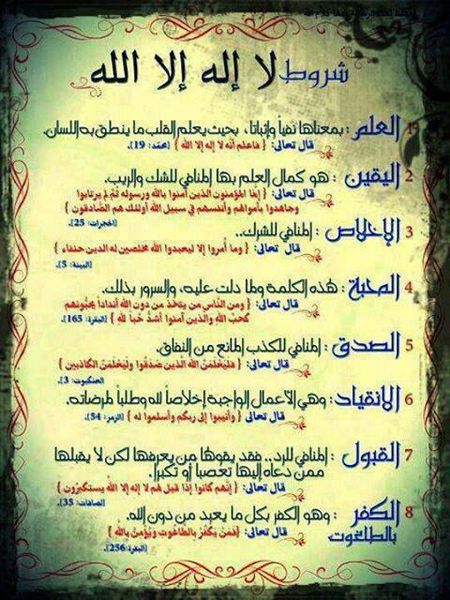 شروط لا إله إلا الله
1 العلم : بمعناها نفياً وإثباتاً، بحيث يعلم القلب ما ينطق به اللسان.
قال تعالى: { فاعلم أنه لا إله إلا الله } [محمد: 19].
2 اليقين : هو كمال العلم بها المنافي للشك والريب.
قال تعالى: { إنما المؤمنون الذين آمنوا بالله ورسوله ثم لم يرتابوا
وجاهدوا بأموالهم وأنفسهم في سبيل الله أولئك هم الصادقون }
[الحجرات: 25].
3 الإخلاص : المنافي للشرك..
قال تعالى: { وما أمروا إلا ليعبدوا الله مخلصين له الدين حنفاء }
[البينة: 5].
4 المحبة : هذه الكلمة ولما دلت عليه، والسرور بذلك.
قال تعالى: { ومن الناس من يتخذ من دون الله أنداداً يحبونهم
كحب الله والذين آمنوا أشد حباً لله } [البقرة: 165].
5 الصدق : المنافي للكذب المانع من النفاق.
قال تعالى: { فليعلمن الله الذين صدقوا وليعلمن الكاذبين }
[العنكبوت: 3].
6 الانقياد : وهي الأعمال الواجبة إخلاصاً لله وطلباً لمرضاته.
قال تعالى: { وأنيبوا إلى ربكم وأسلموا له } [الزمر: 54].
7 القبول : المنافي للرد.. فقد يقولها من يعرفها لكن لا يقبلها
ممن دعاه إليها تعصباً أو تكبراً.
قال تعالى: { إنهم كانوا إذا قيل لهم لا إله إلا الله يستكبرون }
[الصافات: 35].
8 الكفر بالطاغوت : وهو الكفر بكل ما يعبد من دون الله.
قال تعالى: { فمن يكفر بالطاغوت ويؤمن بالله }
[البقرة: 256].